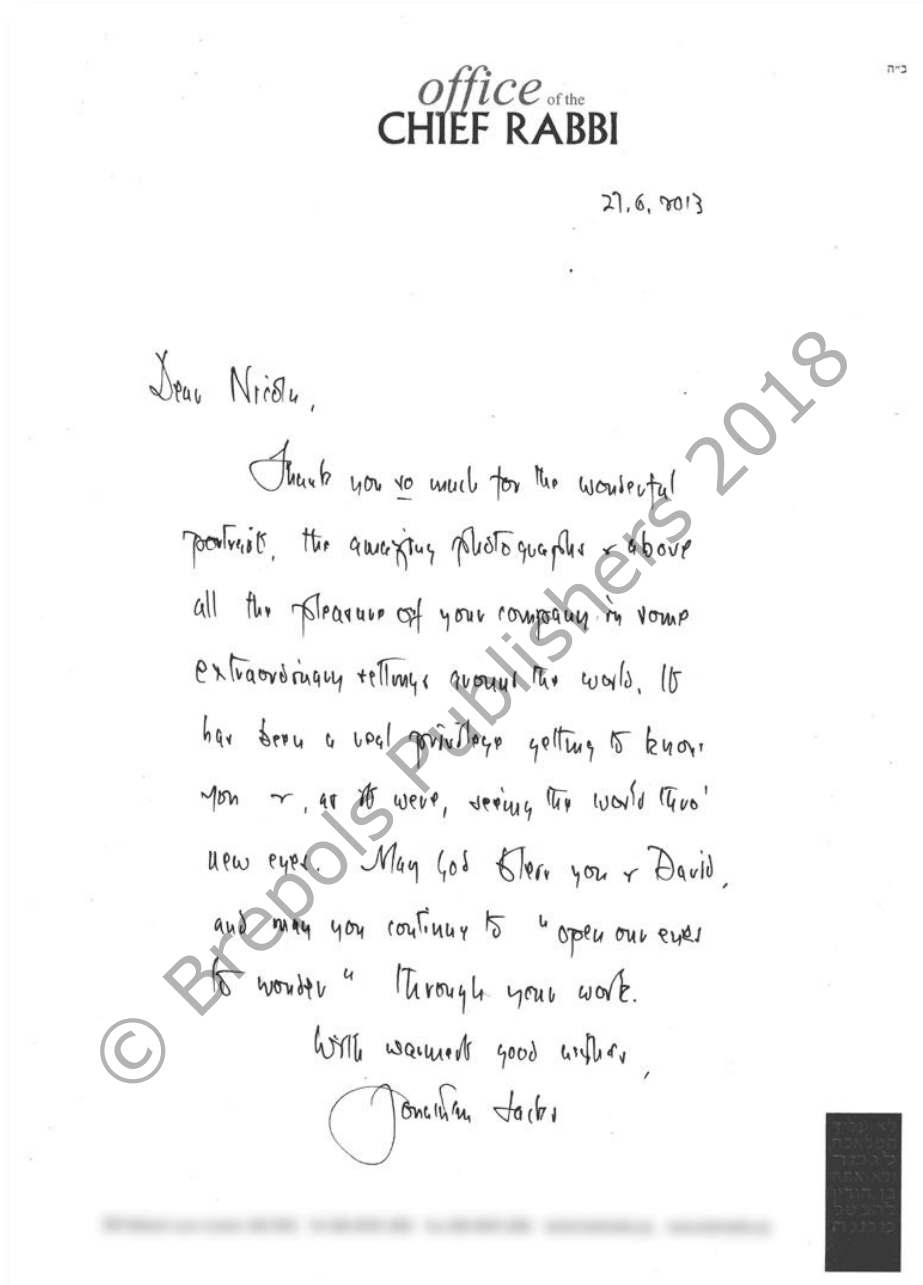 ב״ה
office of the
CHIEF RABBI
27.6.2013
Dear Nicola,
Thank you so much for the wonderful
portrait, the amazing photographs & above
all the pleasure of your company in some
extraordinary settings around the world. It
has been a real privilege getting to know
you &, as it were, seeing the world thro'
new eyes. May God bless you & David,
and may you continue to "open our eyes
to wonder" through your work.
With warmest good wishes,
Jonathan Sacks
לא עליך
המלאכה
לגמור
ולא אתה
בן חורין
להבטל
ממנה
© Brepols Publishers 2018